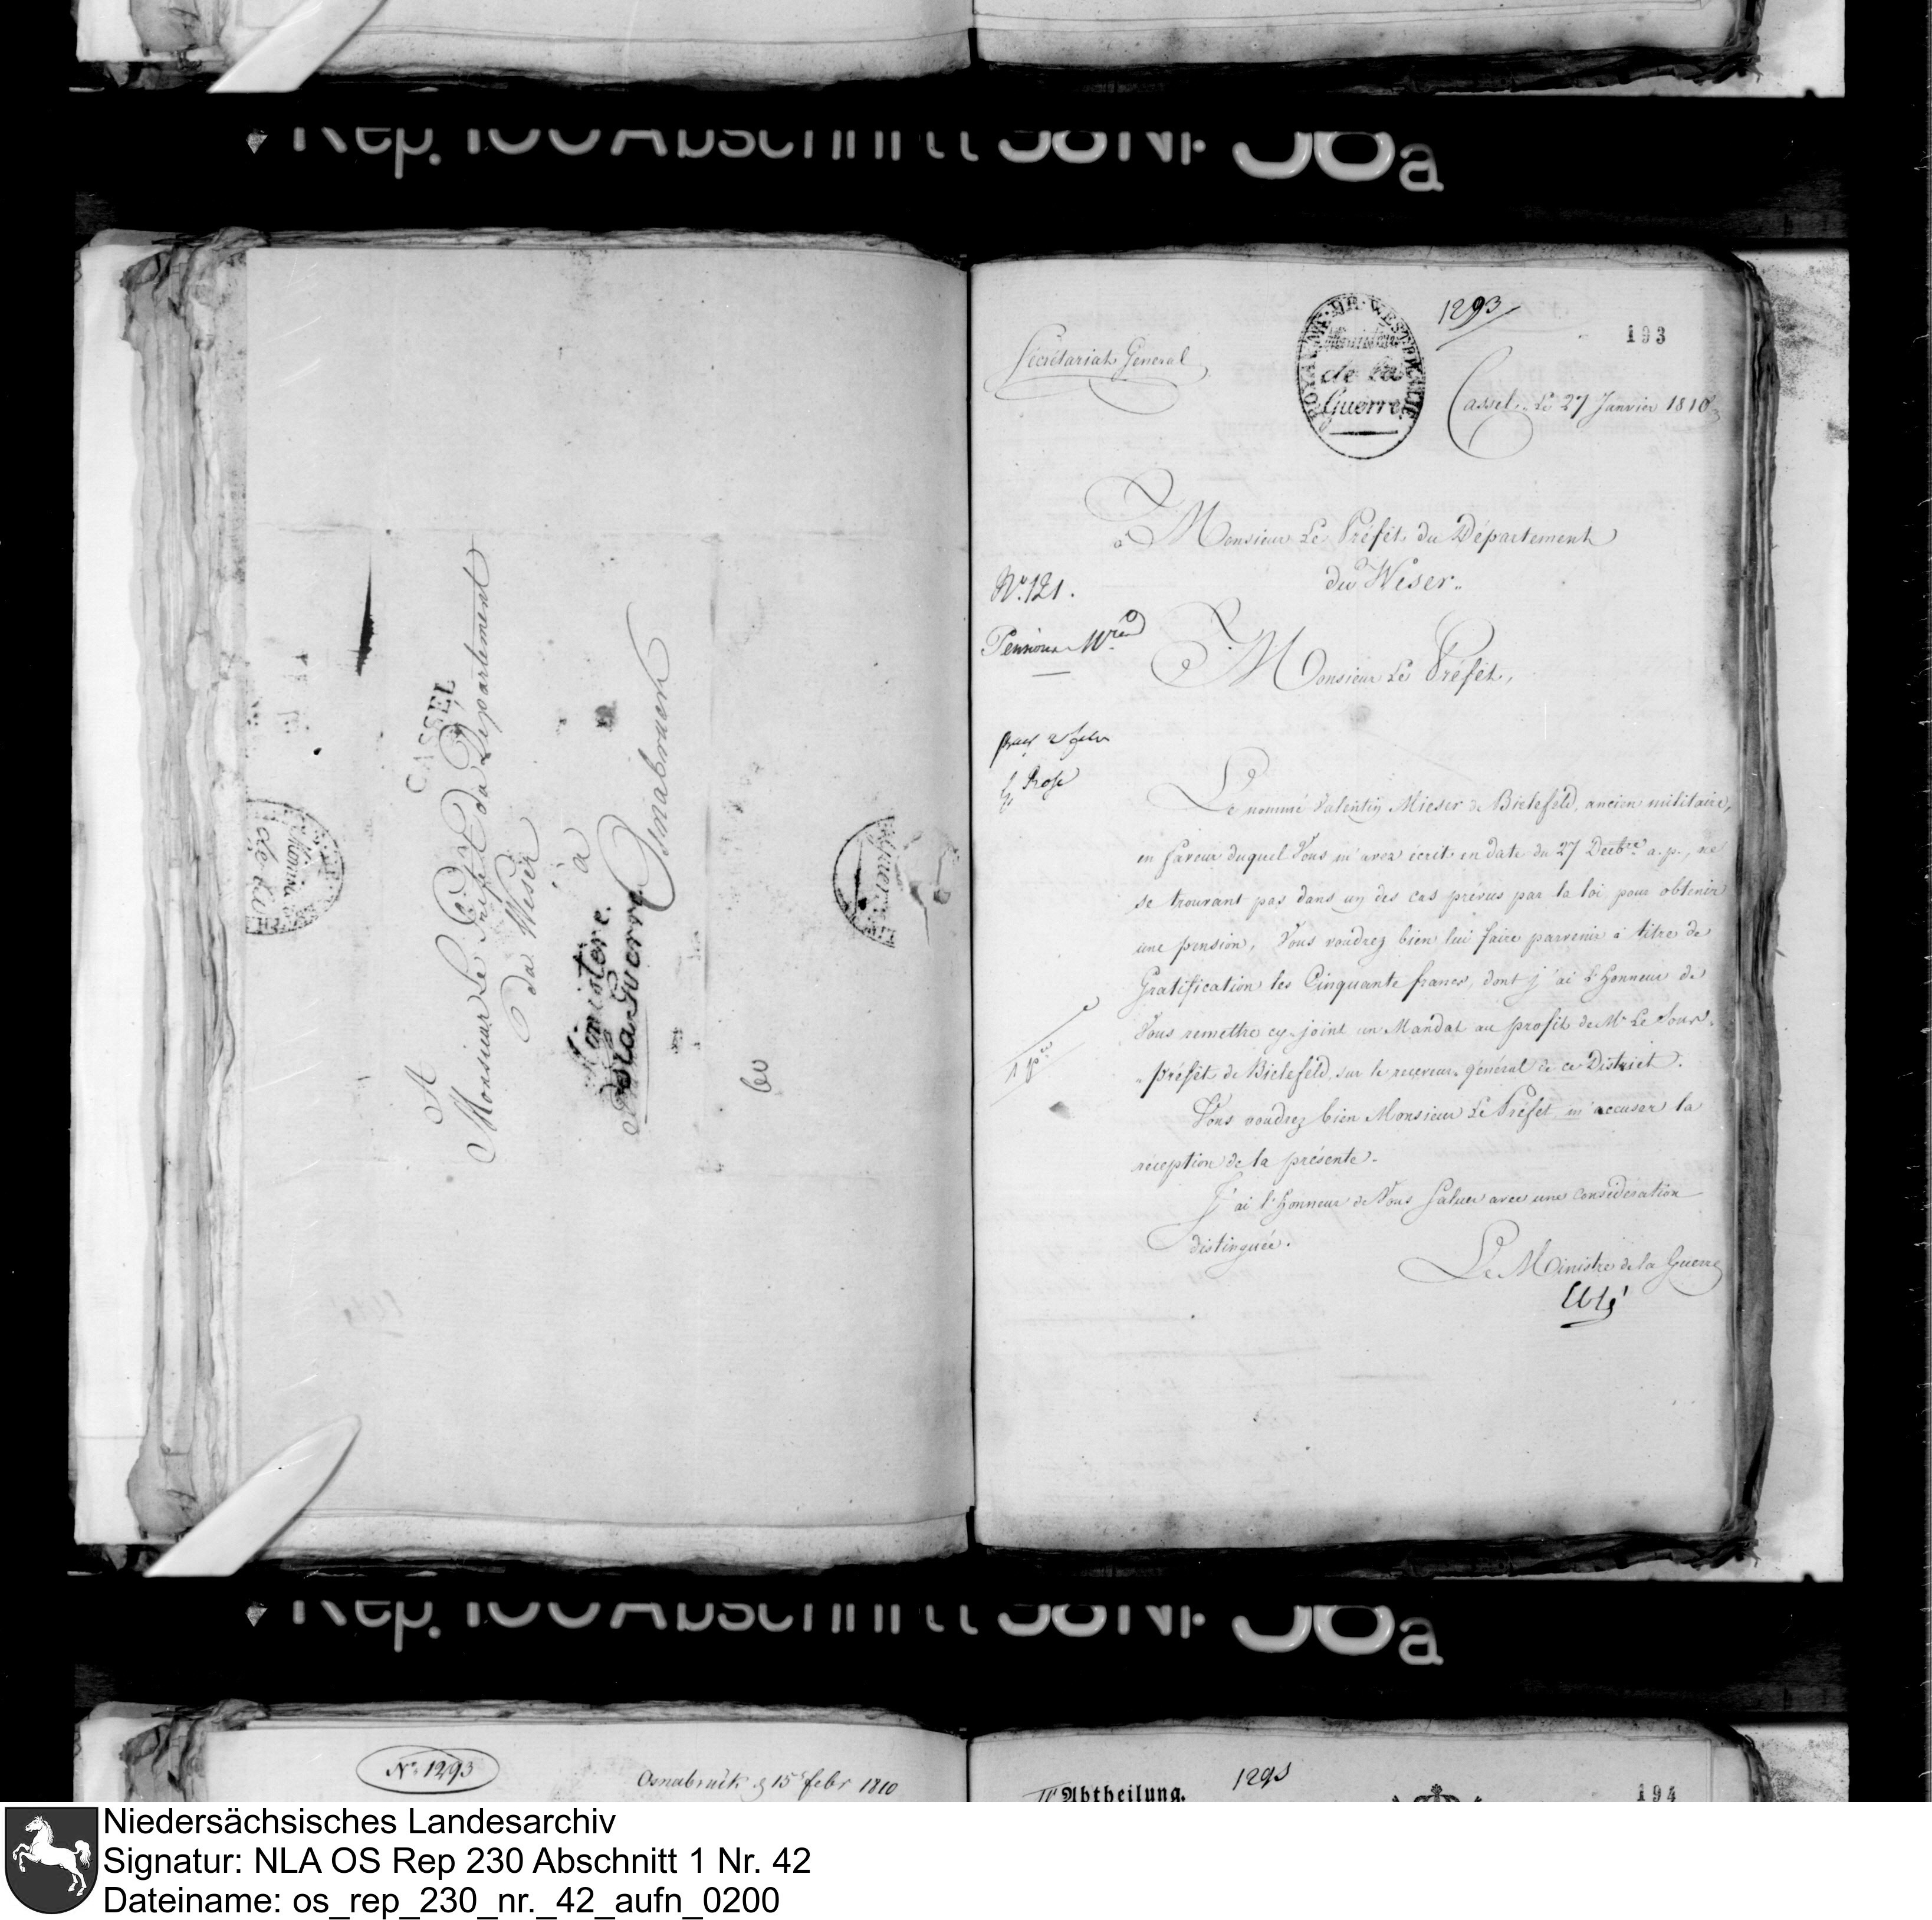 Rep. 100 Abschnitt 58 Nr. 58a
CASSEL
A
Monsieur Le Préfet du Département
du Weser
à
Osnabrueck
Ministère
de la Guerre
60
1293
193
Sécrétariat Général
ROYAUME DE WESTPHALIE
Ministère
de la
Guerre
Cassel, Le 27 Janvier 1810
à Monsieur Le Préfet du Département
du Weser.
N.º 121.
Pensions
Monsieur Le Préfet,
Le nommé Valentin Mieser de Bielefeld, ancien militaire,
en faveur duquel Vous m'avez écrit en date du 27 Decbre a. p., ne
se trouvant pas dans un des cas prévus par la loi pour obtenir
une pension, Vous voudrez bien lui faire parvenir à titre de
Gratification les Cinquante francs, dont j'ai l'Honneur de
Vous remettre cy-joint un Mandat au profit de Mr Le Sous-
préfet de Bielefeld, sur le receveur général de ce District.
Vous voudrez bien Monsieur Le Préfet m'accuser la
réception de la présente.
J'ai l'Honneur de Vous Saluer avec une consideration
distinguée.
Le Ministre de la Guerre
Rep. 100 Abschnitt 58 Nr. 58a
Nº 1293
Osnabrück 15 febr 1810
IIe Abtheilung.
1293
194
Niedersächsisches Landesarchiv
Signatur: NLA OS Rep 230 Abschnitt 1 Nr. 42
Dateiname: os_rep_230_nr._42_aufn_0200